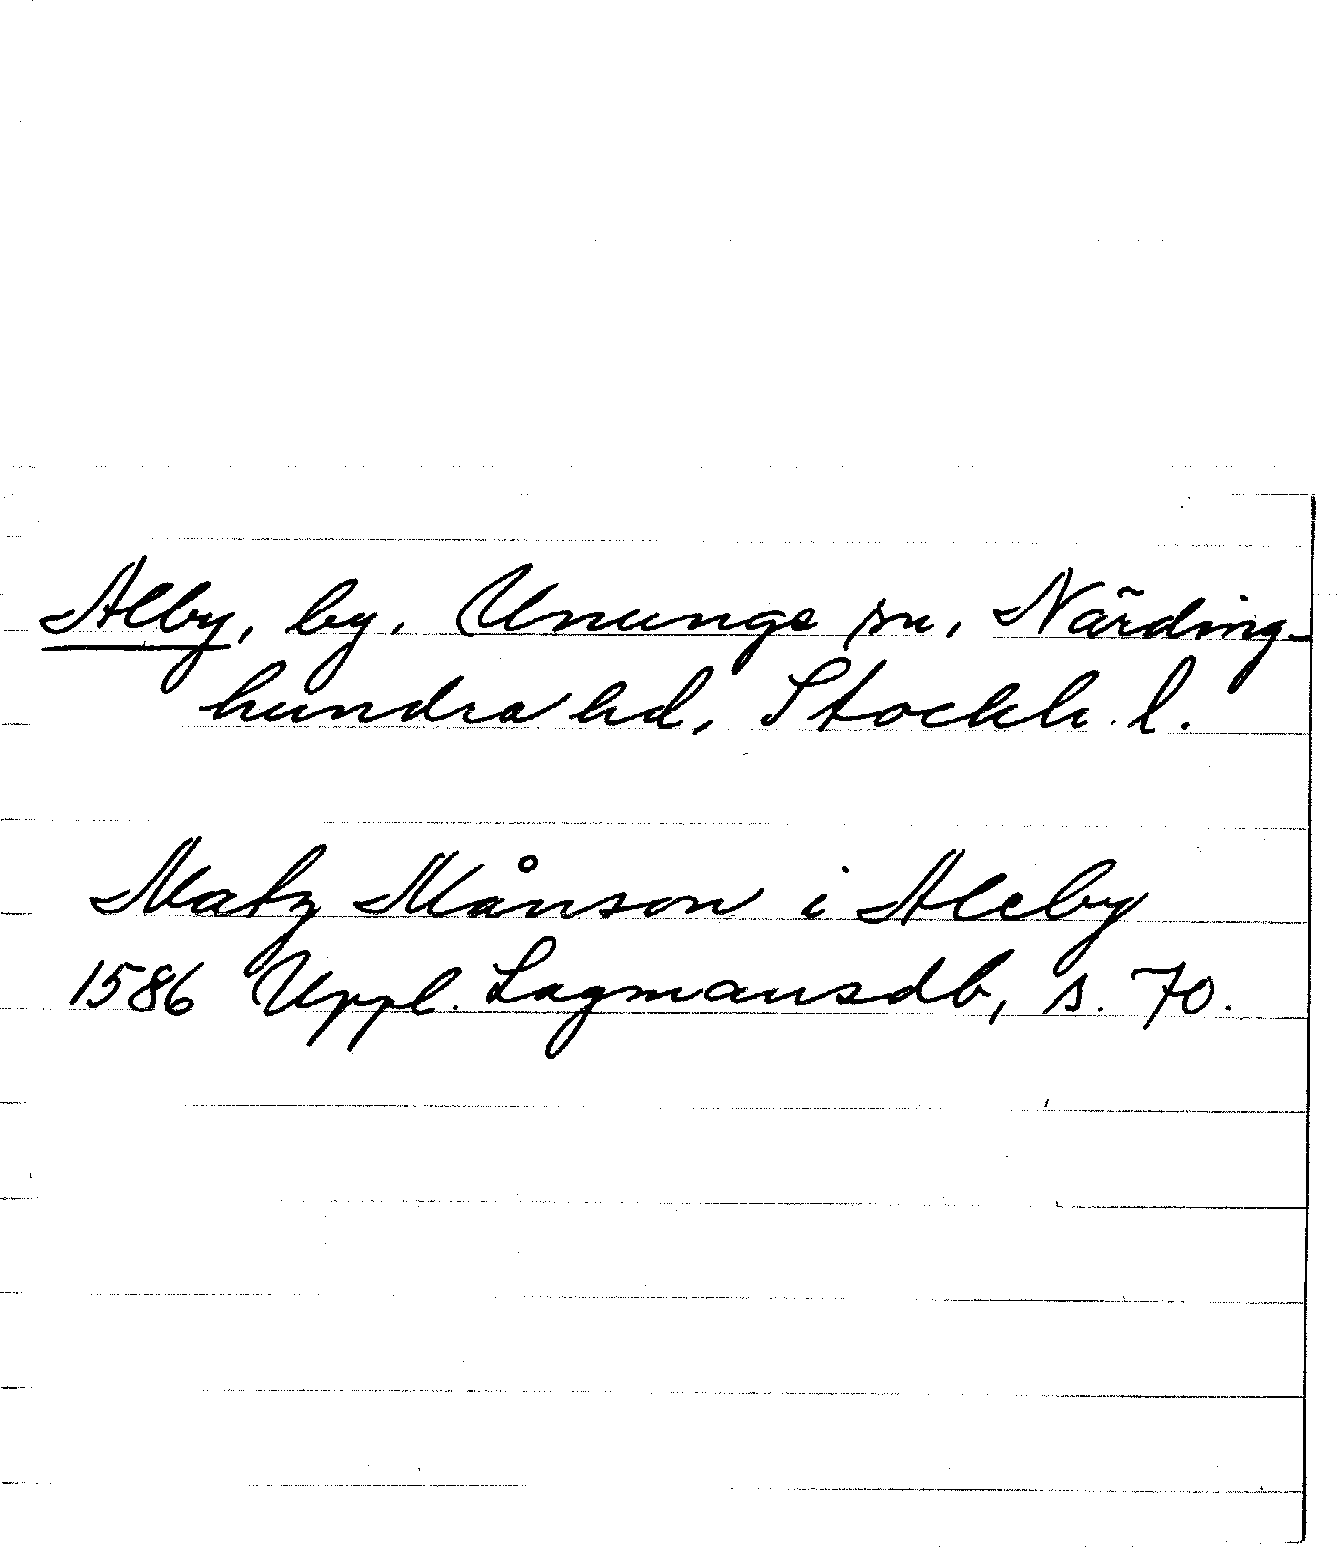 Alby, by. Ununge sn, Närding-
hundra hd, Stockh. l.
Matz Månson i Aleby
1586 Uppl. Lagmansdb, s. 70.